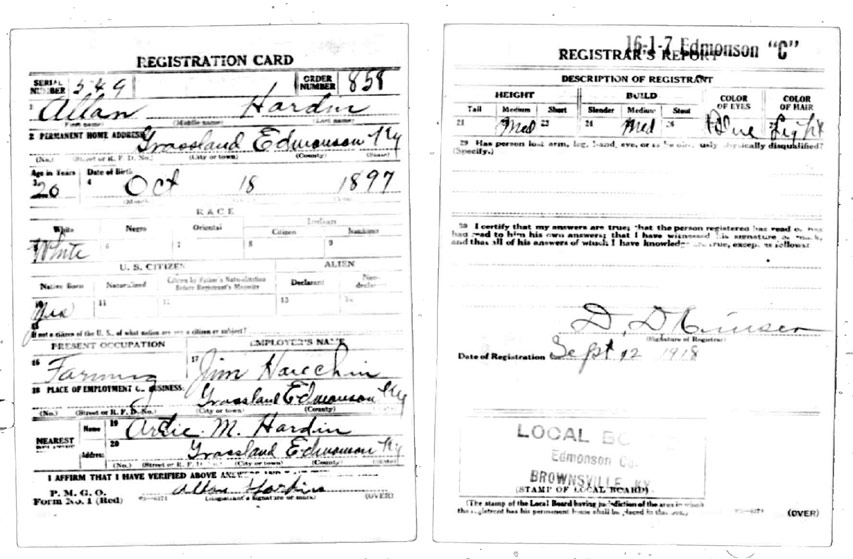 REGISTRATION CARD
SERIAL NUMBER 549 ORDER NUMBER 858
1 Allan Hardin
(First name) (Middle name) (Last name)
2 PERMANENT HOME ADDRESS: Grassland Edmonson Ky
(No.) (Street or R. F. D. No.) (City or town) (County) (State)
Age in Years Date of Birth
3 20 4 Oct 18 1897
RACE
White Negro Oriental Indian
Citizen Noncitizen
5 White 6 7 8 9
U. S. CITIZEN ALIEN
Native Born Naturalized Citizen by Father's Naturalization Before Registrant's Majority Declarant Non-declarant
10 Yes 11 12 13 14
15 If not a citizen of the U. S., of what nation are you a citizen or subject?
PRESENT OCCUPATION EMPLOYER'S NAME
16 Farming 17 Jim
18 PLACE OF EMPLOYMENT OR BUSINESS:
Grassland Edmonson Ky
(No.) (Street or R. F. D. No.) (City or town) (County)
NEAREST RELATIVE Name 19 M. Hardin
Address 20 Grassland Edmonson Ky
(No.) (Street or R. F. D. No.) (City or town) (County) (State)
I AFFIRM THAT I HAVE VERIFIED ABOVE ANSWERS AND
P. M. G. O.
Form No. 1 (Red) Allan Hardin
(Registrant's signature or mark) (OVER)
16-1-7 Edmonson "C"
REGISTRAR'S REPORT
DESCRIPTION OF REGISTRANT
HEIGHT BUILD COLOR OF EYES COLOR OF HAIR
Tall Medium Short Slender Medium Stout
21 Med 23 24 Med 26 Blue Light
29 Has person lost arm, leg, hand, eye, or is he obviously physically disqualified?
(Specify.)
30 I certify that my answers are true; that the person registered has read or has
had read to him his own answers; that I have witnessed his signature or mark,
and that all of his answers of which I have knowledge are true, except as follows:
D. D.
(Signature of Registrar)
Date of Registration Sept 12 1918
LOCAL BO
Edmonson Co.
BROWNSVILLE, KY.
(STAMP OF LOCAL BOARD)
(The stamp of the Local Board having jurisdiction of the area in which
the registrant has his permanent home shall be placed in this box.)
(OVER)